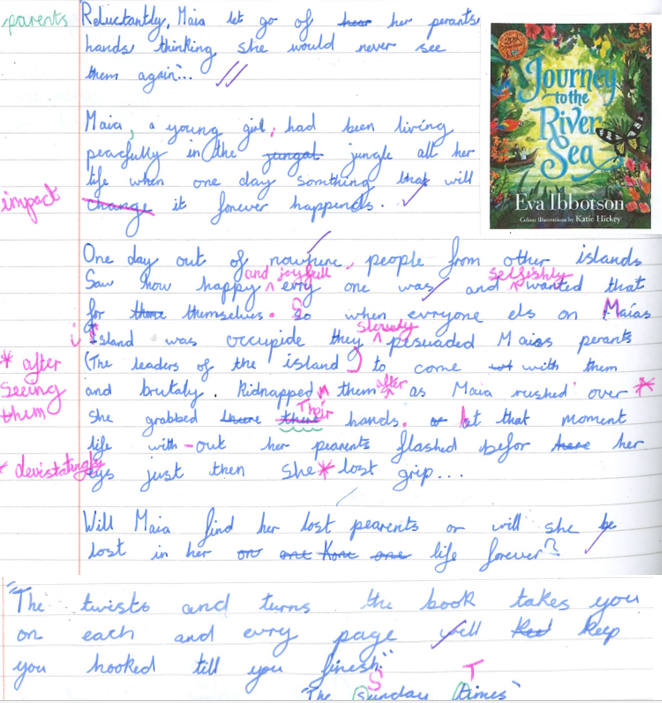 parents
Reluctantly, Maia let go of her perants
hands thinking she would never see
them again...
Maia, a young girl, had been living
peacfully in the jungle all her
life when one day somthing that will
impact
change it forever happends.
One day out of nowhere, people from other islands
and joyfull
selfishly
Saw how happy evry one was and wanted that
for there themselves. So when evryone els on Maias
slowely
island was occupide they pisuaded Maias perants
(The leaders of the island) to come with them
* after
seeing
them
and brutaly. Kidnapped them after as Maia rushed over *
She grabbed there their Their hands. at that moment
life with-out her pearents flashed befor her
* devistatingly
eys just then she * lost grip...
Will Maia find her lost pearents or will she be
lost in her on one one life forever?
"The twists and turns the book takes you
on each and evry page will keep
you hooked till you finesh."
"The Sunday Times"
Journey
to the
River
Sea
Eva Ibbotson
Colour illustrations by Katie Hickey